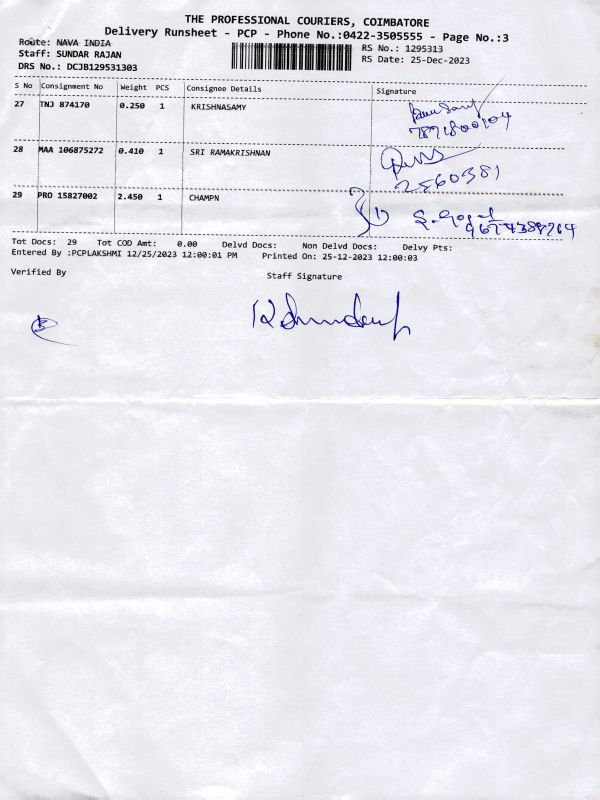 THE PROFESSIONAL COURIERS, COIMBATORE
Delivery Runsheet - PCP - Phone No.:0422-3505555 - Page No.:3
Route: NAVA INDIA
Staff: SUNDAR RAJAN
DRS No.: DCJB129531303
RS No.: 1295313
RS Date: 25-Dec-2023
S No Consignment No Weight PCS Consignee Details Signature
27 TNJ 874170 0.250 1 KRISHNASAMY
28 MAA 106875272 0.410 1 SRI RAMAKRISHNAN
2560381
29 PRO 15827002 2.450 1 CHAMPN
S. Gopal
Tot Docs: 29 Tot COD Amt: 0.00 Delvd Docs: Non Delvd Docs: Delvy Pts:
Entered By :PCPLAKSHMI 12/25/2023 12:00:01 PM Printed On: 25-12-2023 12:00:03
Verified By Staff Signature